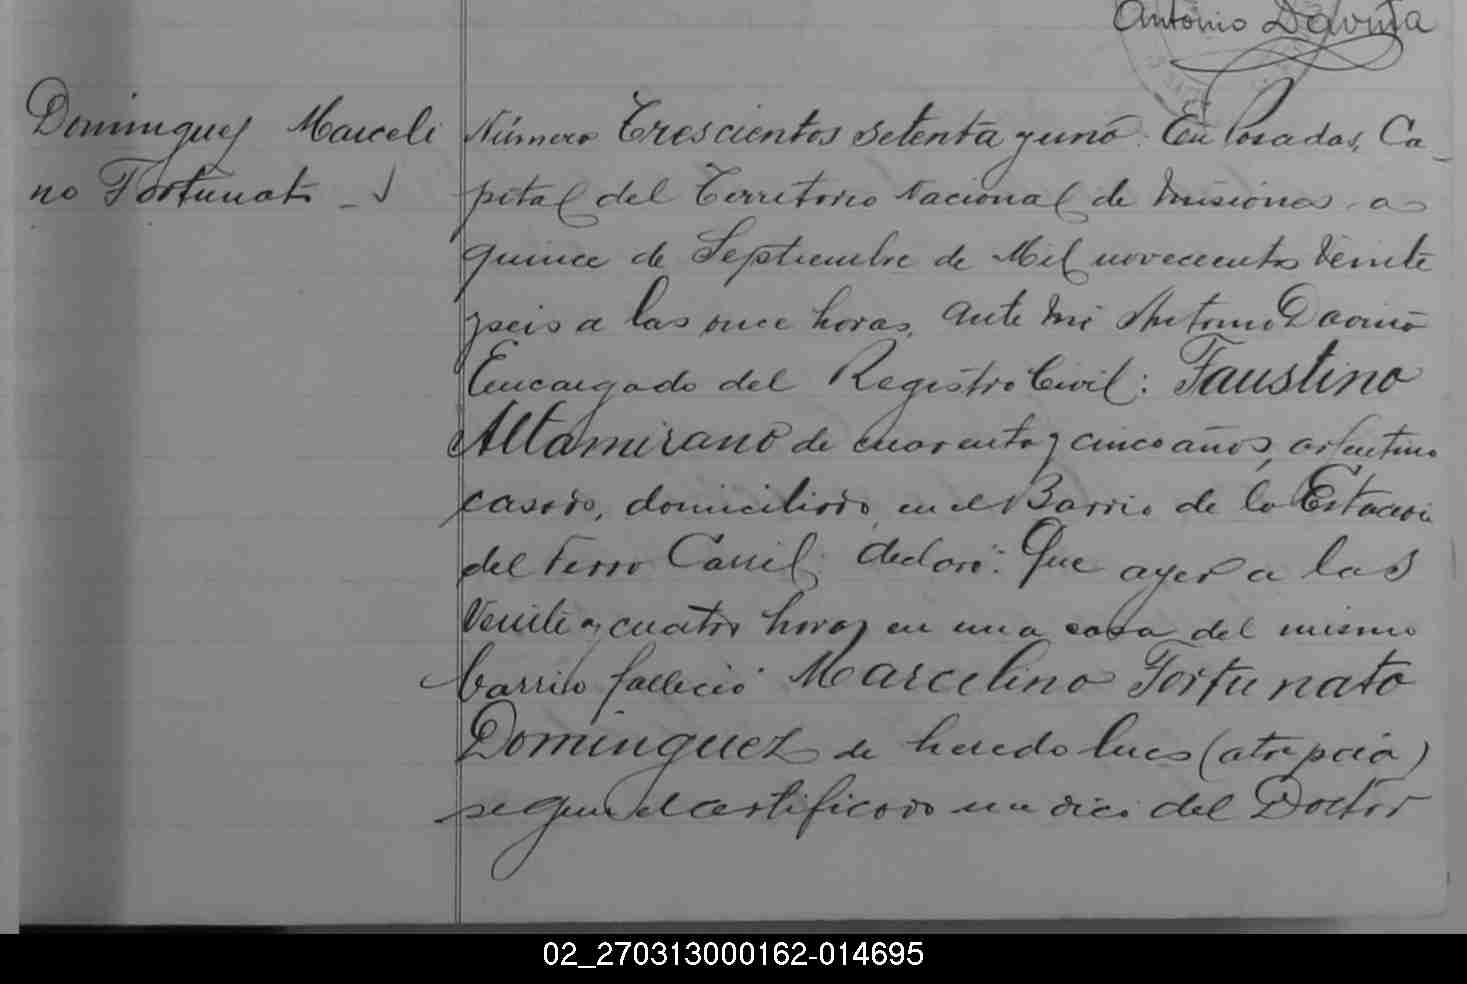 Antonio Daviña
Dominguez Marceli
no Fortunato
Número Trescientos setenta y uno. En Posadas, Ca-
pital del Territorio Nacional de Misiones a
quince de Septiembre de Mil novecientos Veinte
y seis a las once horas, ante Mi Antonio Daviña
Encargado del Registro Civil: Faustino
Altamirano de cuarenta y cinco años, argentino
casado, domiciliado en el Barrio de la Estación
del Ferro Carril declaró: Que ayer a las
Veinte y cuatro horas en una casa del mismo
barrio falleció Marcelino Fortunato
Dominguez de heredo lues (atrepcia)
segun el certificado medico del Doctor
02_270313000162-014695